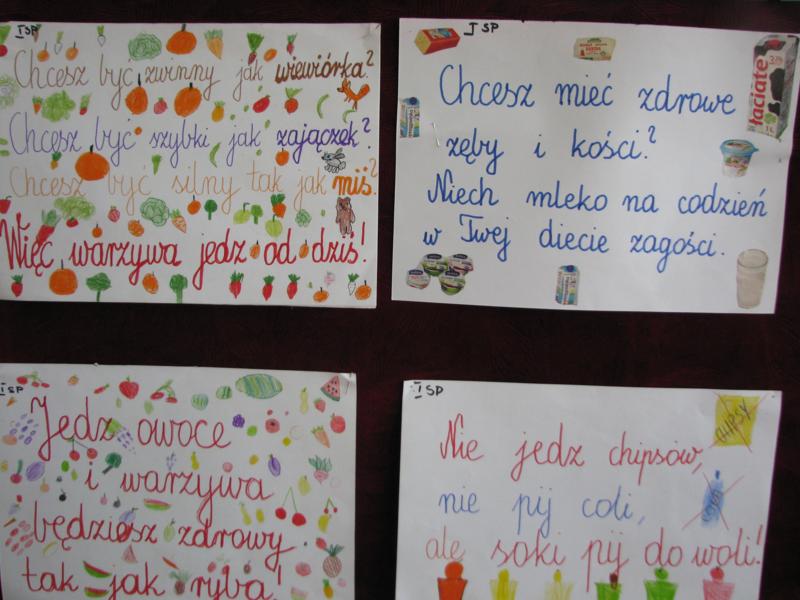 I SP
Chcesz być zwinny jak wiewiórka?
Chcesz być szybki jak zajączek?
Chcesz być silny tak jak miś?
Więc warzywa jedz od dziś!
I SP
Chcesz mieć zdrowe
zęby i kości?
Niech mleko na codzień
w Twej diecie zagości.
łaciate
I SP
Jedz owoce
i warzywa
będziesz zdrowy
tak jak ryba!
I SP
Nie jedz chipsów,
nie pij coli,
ale soki pij do woli!
CHIPSY